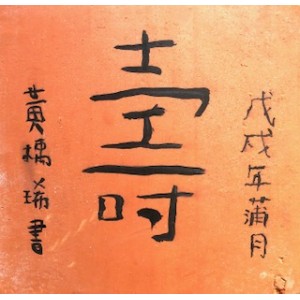 戊戌年蒲月
壽
黃橋瑞書